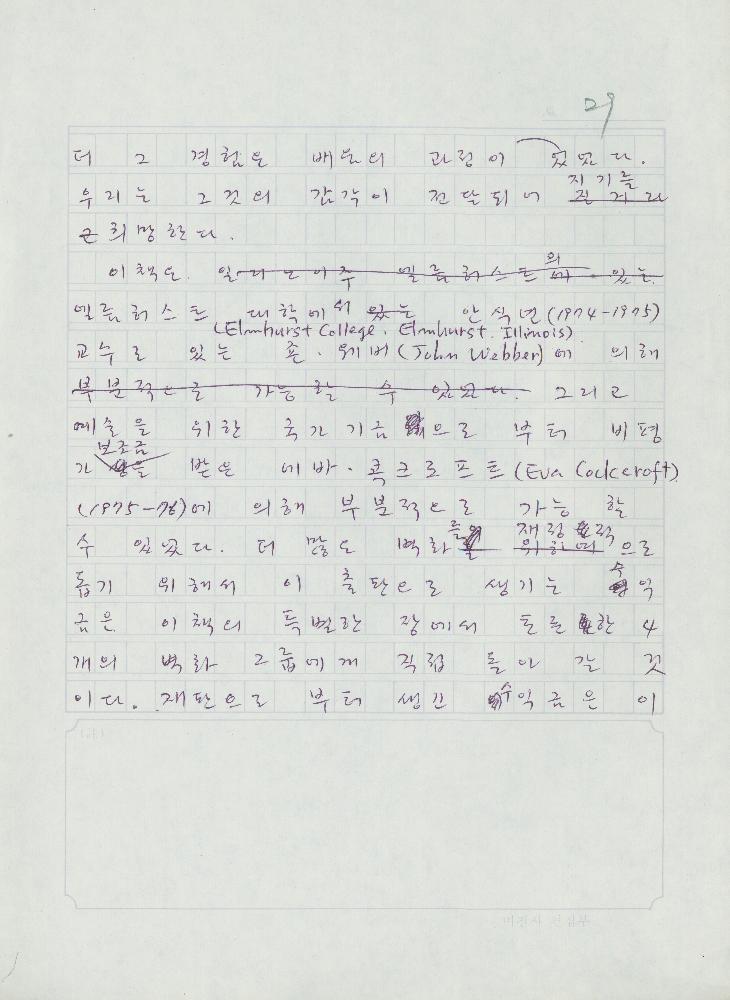 29
더 그 경험은 배움의 과정이 었었다.
지기를
우리는 그것의 감각이 전달되어 진 거라
고 희망한다.
의
이 책도. 엘름허스트 있는
엘름허스트 대학에서 있는 안식년(1974-1975)
(Elmhurst College. Elmhurst. Illinois)
교수로 있는 죤. 웨버(John Webber)에 의해
부분적으로 가능할 수 있었다. 그리고
예술을 위한 국가기금으로 부터 비평
보조금
가 을 받은 에바·콕크로프트(Eva Cockcroft)
(1975-76)에 의해 부분적으로 가능할
를 재정적
수 있었다. 더 많은 벽화 위하여 으로
수
돕기 위해서 이 출판으로 생기는 익
금은 이 책의 특별한 장에서 토론한 4
개의 벽화 그룹에게 직접 돌아 갈 것
이다. 재판으로 부터 생긴 수익금은 이
미진사 편집부